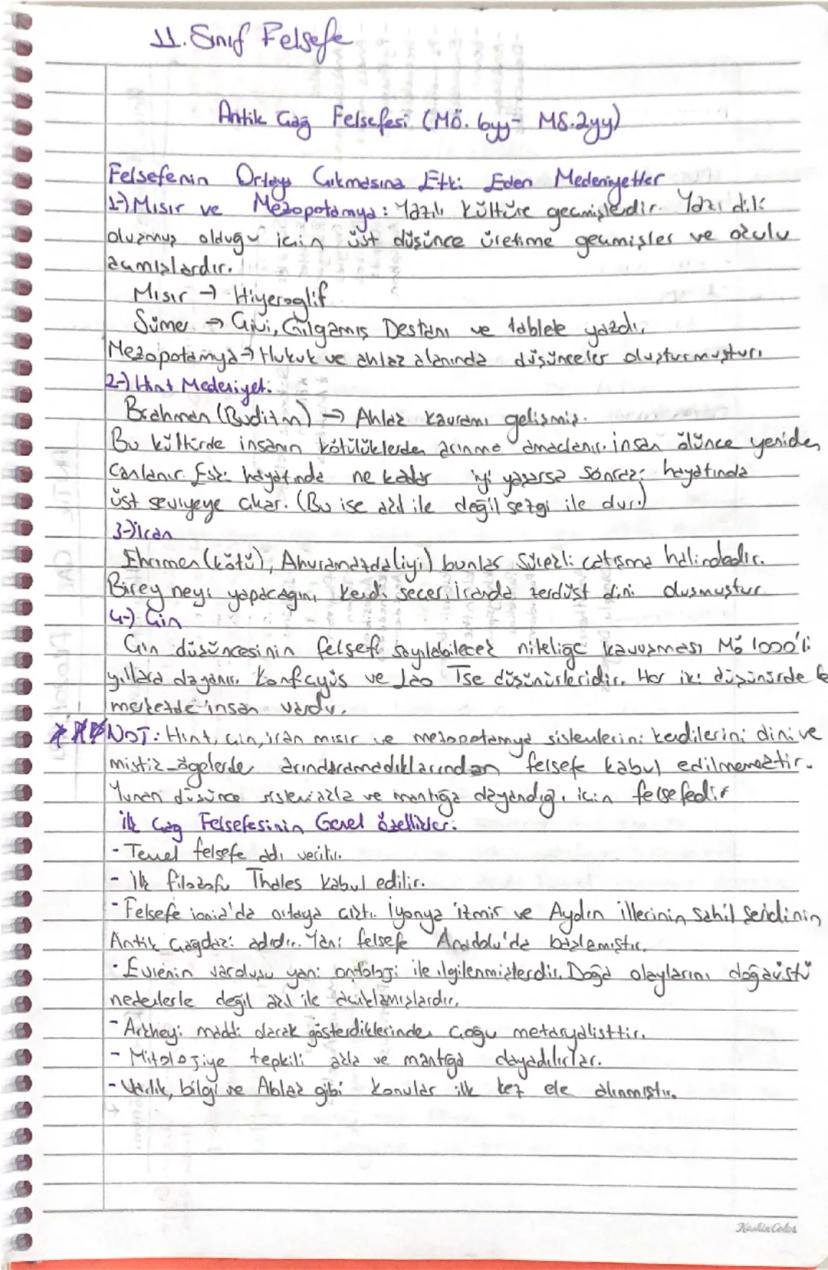 11. Sınıf Felsefe
Antik Çağ Felsefesi (MÖ. 6yy- MS.2yy)
Felsefenin Ortaya Çıkmasına Etki Eden Medeniyetler
1-) Mısır ve Mezopotamya: Yazılı kültüre geçmişlerdir. Yazı dili
oluşmuş olduğu için üst düşünce üretime geçmişler ve okulu
açmışlardır.
Mısır → Hiyeroglif
Sümer → Çivi, Gılgamış Destanı ve tablete yazdı.
Mezopotamya → Hukuk ve ahlak alanında düşünceler oluşturmuştur.
2-) Hint Medeniyeti
Brahman (Budizm) → Ahlak kavramı gelişmiş.
Bu kültürde insanın kötülüklerden arınma amaçlanır. insan ölünce yeniden
Canlanır. Eski hayatında ne kadar iyi yaşarsa sonraki hayatında
üst seviyeye çıkar. (Bu ise akıl ile değil sezgi ile dur.)
3-) İran
Ehrimen (kötü), Ahuramazda (iyi) bunlar sürekli çatışma halindedir.
Birey neyi yapacağını kendi seçer. İranda zerdüst dini oluşmuştur
4-) Çin
Çin düşüncesinin felsefi sayılabilecek niteliğe kavuşması MÖ 1000'li
yıllara dayanır. Konfeçyüs ve Lao Tse düşünürleridir. Her iki düşünürde
merkezde insan vardır.
NOT: Hint, Çin, iran mısır ve mezopotamya sistemlerini kendilerini dini ve
mistik ögelerde arındaramadıklarından felsefe kabul edilmemektir.
Yunan düşünce sistemi akla ve mantığa dayandığı için felsefedir
ilk Çağ Felsefesinin Genel özellikleri
- Temel felsefe adı verilir.
- ilk filozofu Thales kabul edilir.
- Felsefe ionia'da ortaya çıktı. İyonya izmir ve Aydın illerinin sahil şeridinin
Antik Çağdaki adıdır. Yani felsefe Anadolu'da başlamıştır.
- Evrenin varoluşu yani ontoloji ile ilgilenmişlerdir. Doğa olaylarını doğaüstü
nedenlerle değil akıl ile açıklamışlardır.
- Arkheyi maddi olarak gösterdiklerinde çoğu metaryalisttir.
- Mitolojiye tepkili akla ve mantığa dayadılırlar.
- Varlık, bilgi ve Ahlak gibi konular ilk kez ele alınmıştır.